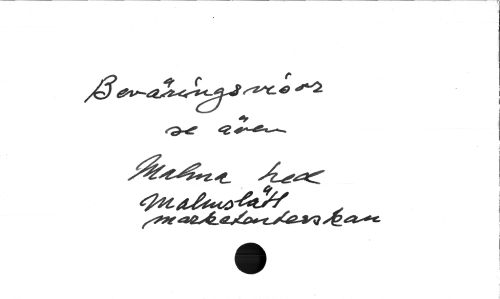 Beväringsvisor
se även
Malma hed
Malmslätt
marketenterskan